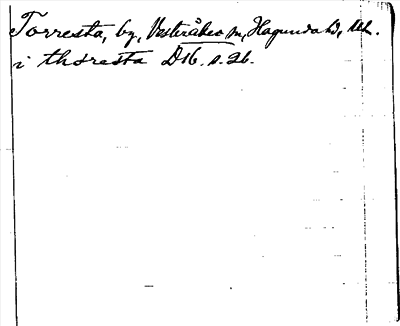 Torresta, by, Västeråkers sn, Hagunda hd, Upl.
i thoresta D16. s. 26.